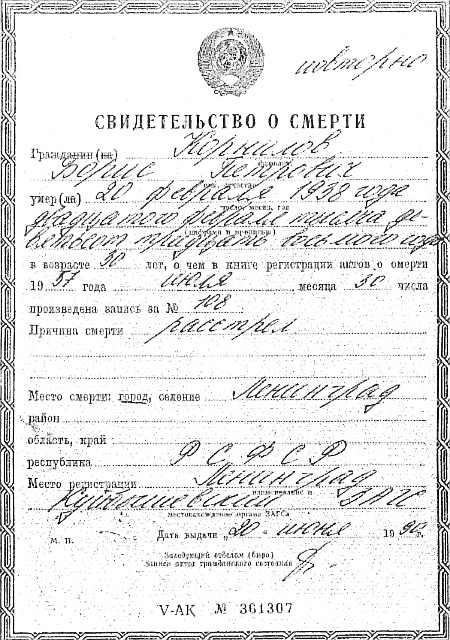 повторно
СВИДЕТЕЛЬСТВО О СМЕРТИ
Гражданин (ка) Корнилов
фамилия
Борис Петрович
имя, отчество
умер (ла) 20 февраля 1938 года
число, месяц, год
двадцатого февраля тысяча де-
(цифрами и прописью)
вятьсот тридцать восьмого года
в возрасте 30 лет, о чем в книге регистрации актов о смерти
19 57 года июля месяца 30 числа
произведена запись за № 108
Причина смерти расстрел
Место смерти: город, селение Ленинград
район
область, край
республика РСФСР
Место регистрации Ленинград
Куйбышевский ЗАГС
местонахождение органа ЗАГСа
Дата выдачи „20“ июня 1990 г.
М. п.
Заведующий отделом (бюро)
записи актов гражданского состояния
V-АК № 361307